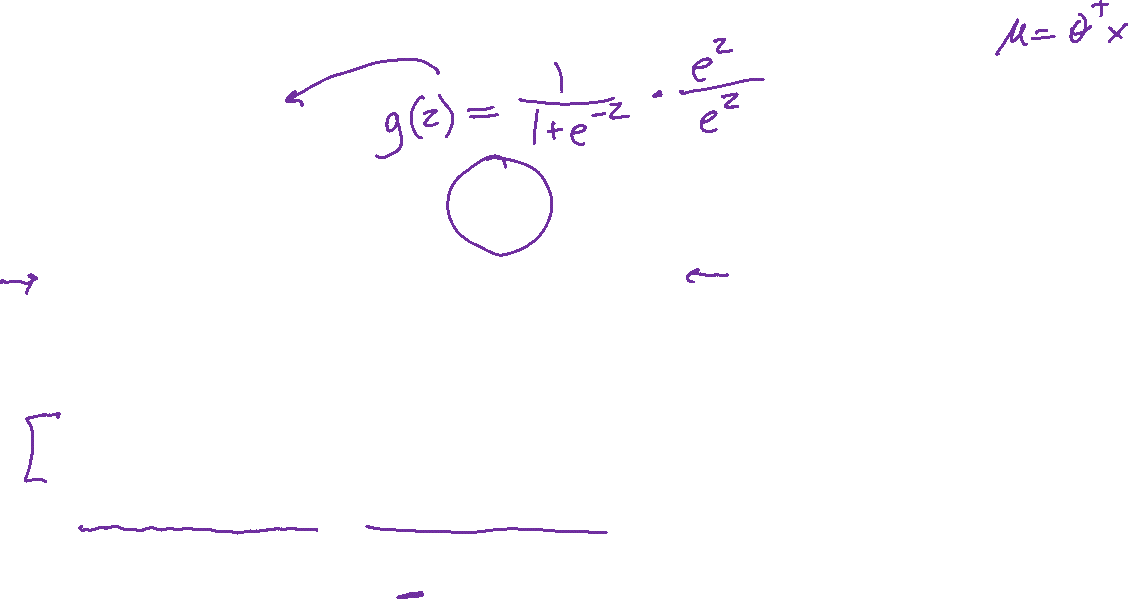 μ = θ^T x
g(z) = 1/(1+e^{-z}) · e^z/e^z